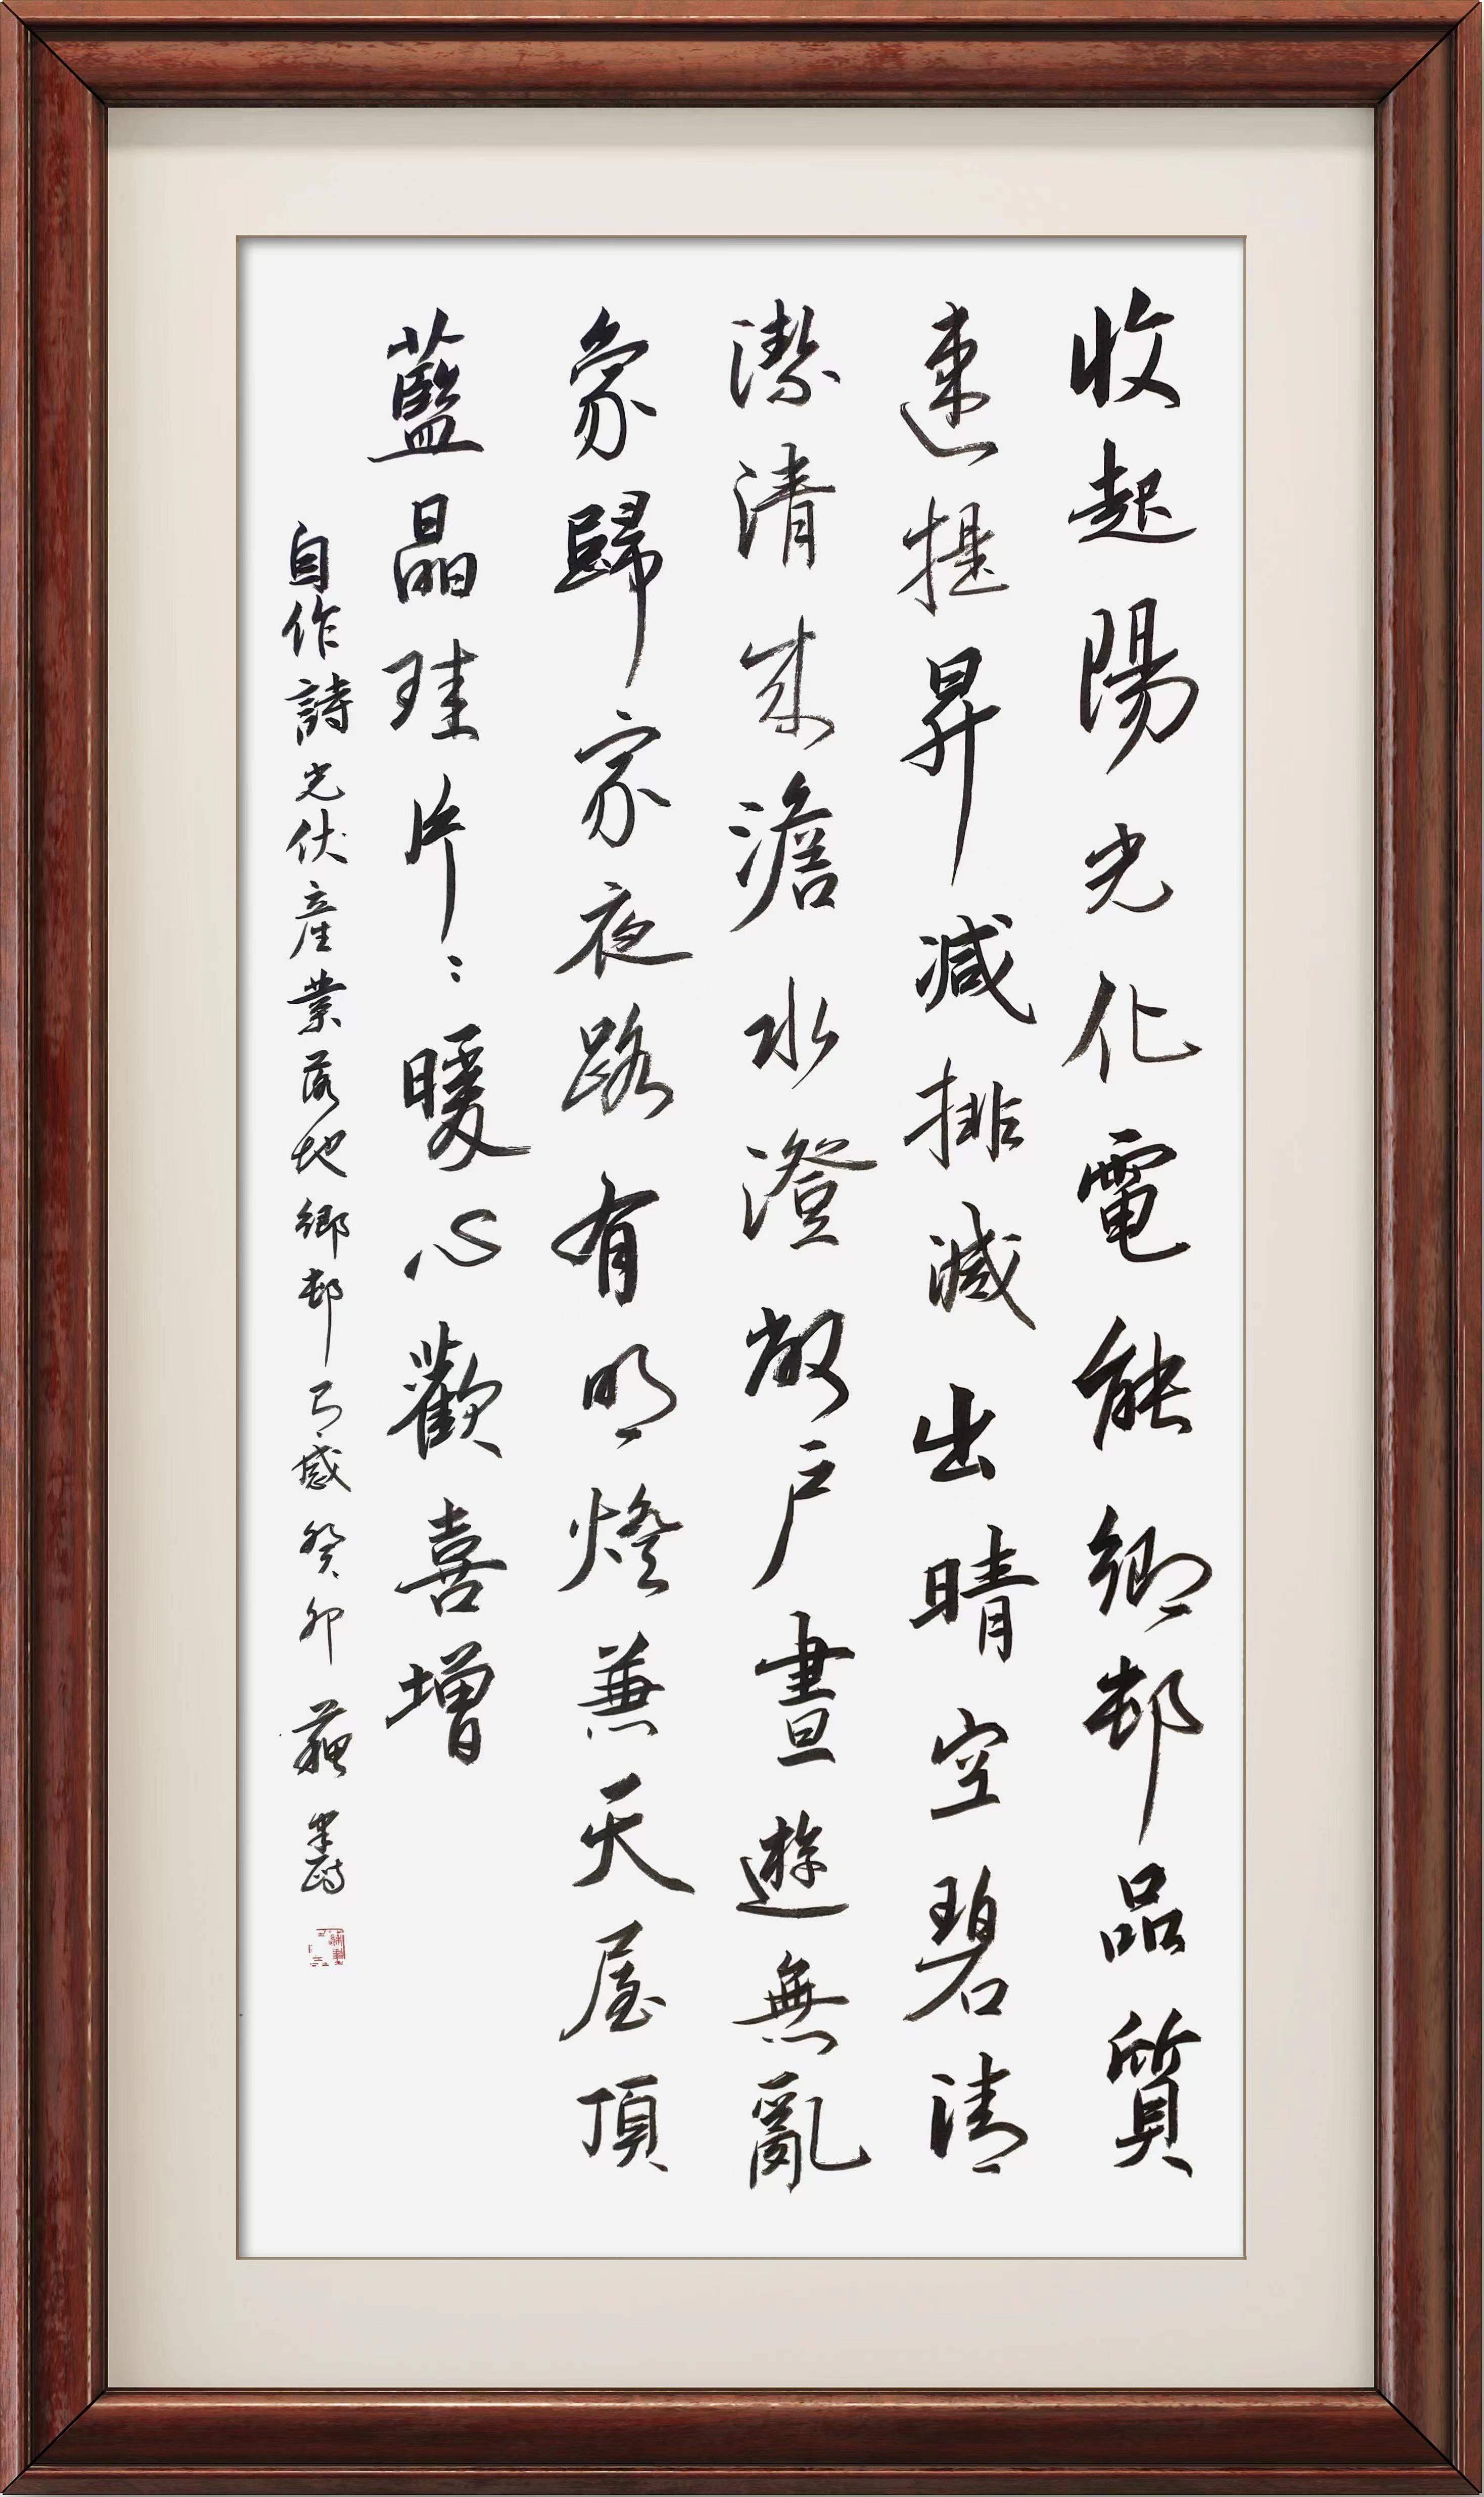 收起陽光化電能鄉邨品質
速提昇減排減出晴空碧清
潔清來澹水澄敞戶晝遊無亂
象歸家夜路有明燈兼天屋頂
藍晶硅片〻暖心歡喜增
自作詩光伏產業落地鄉邨有感癸卯蘇